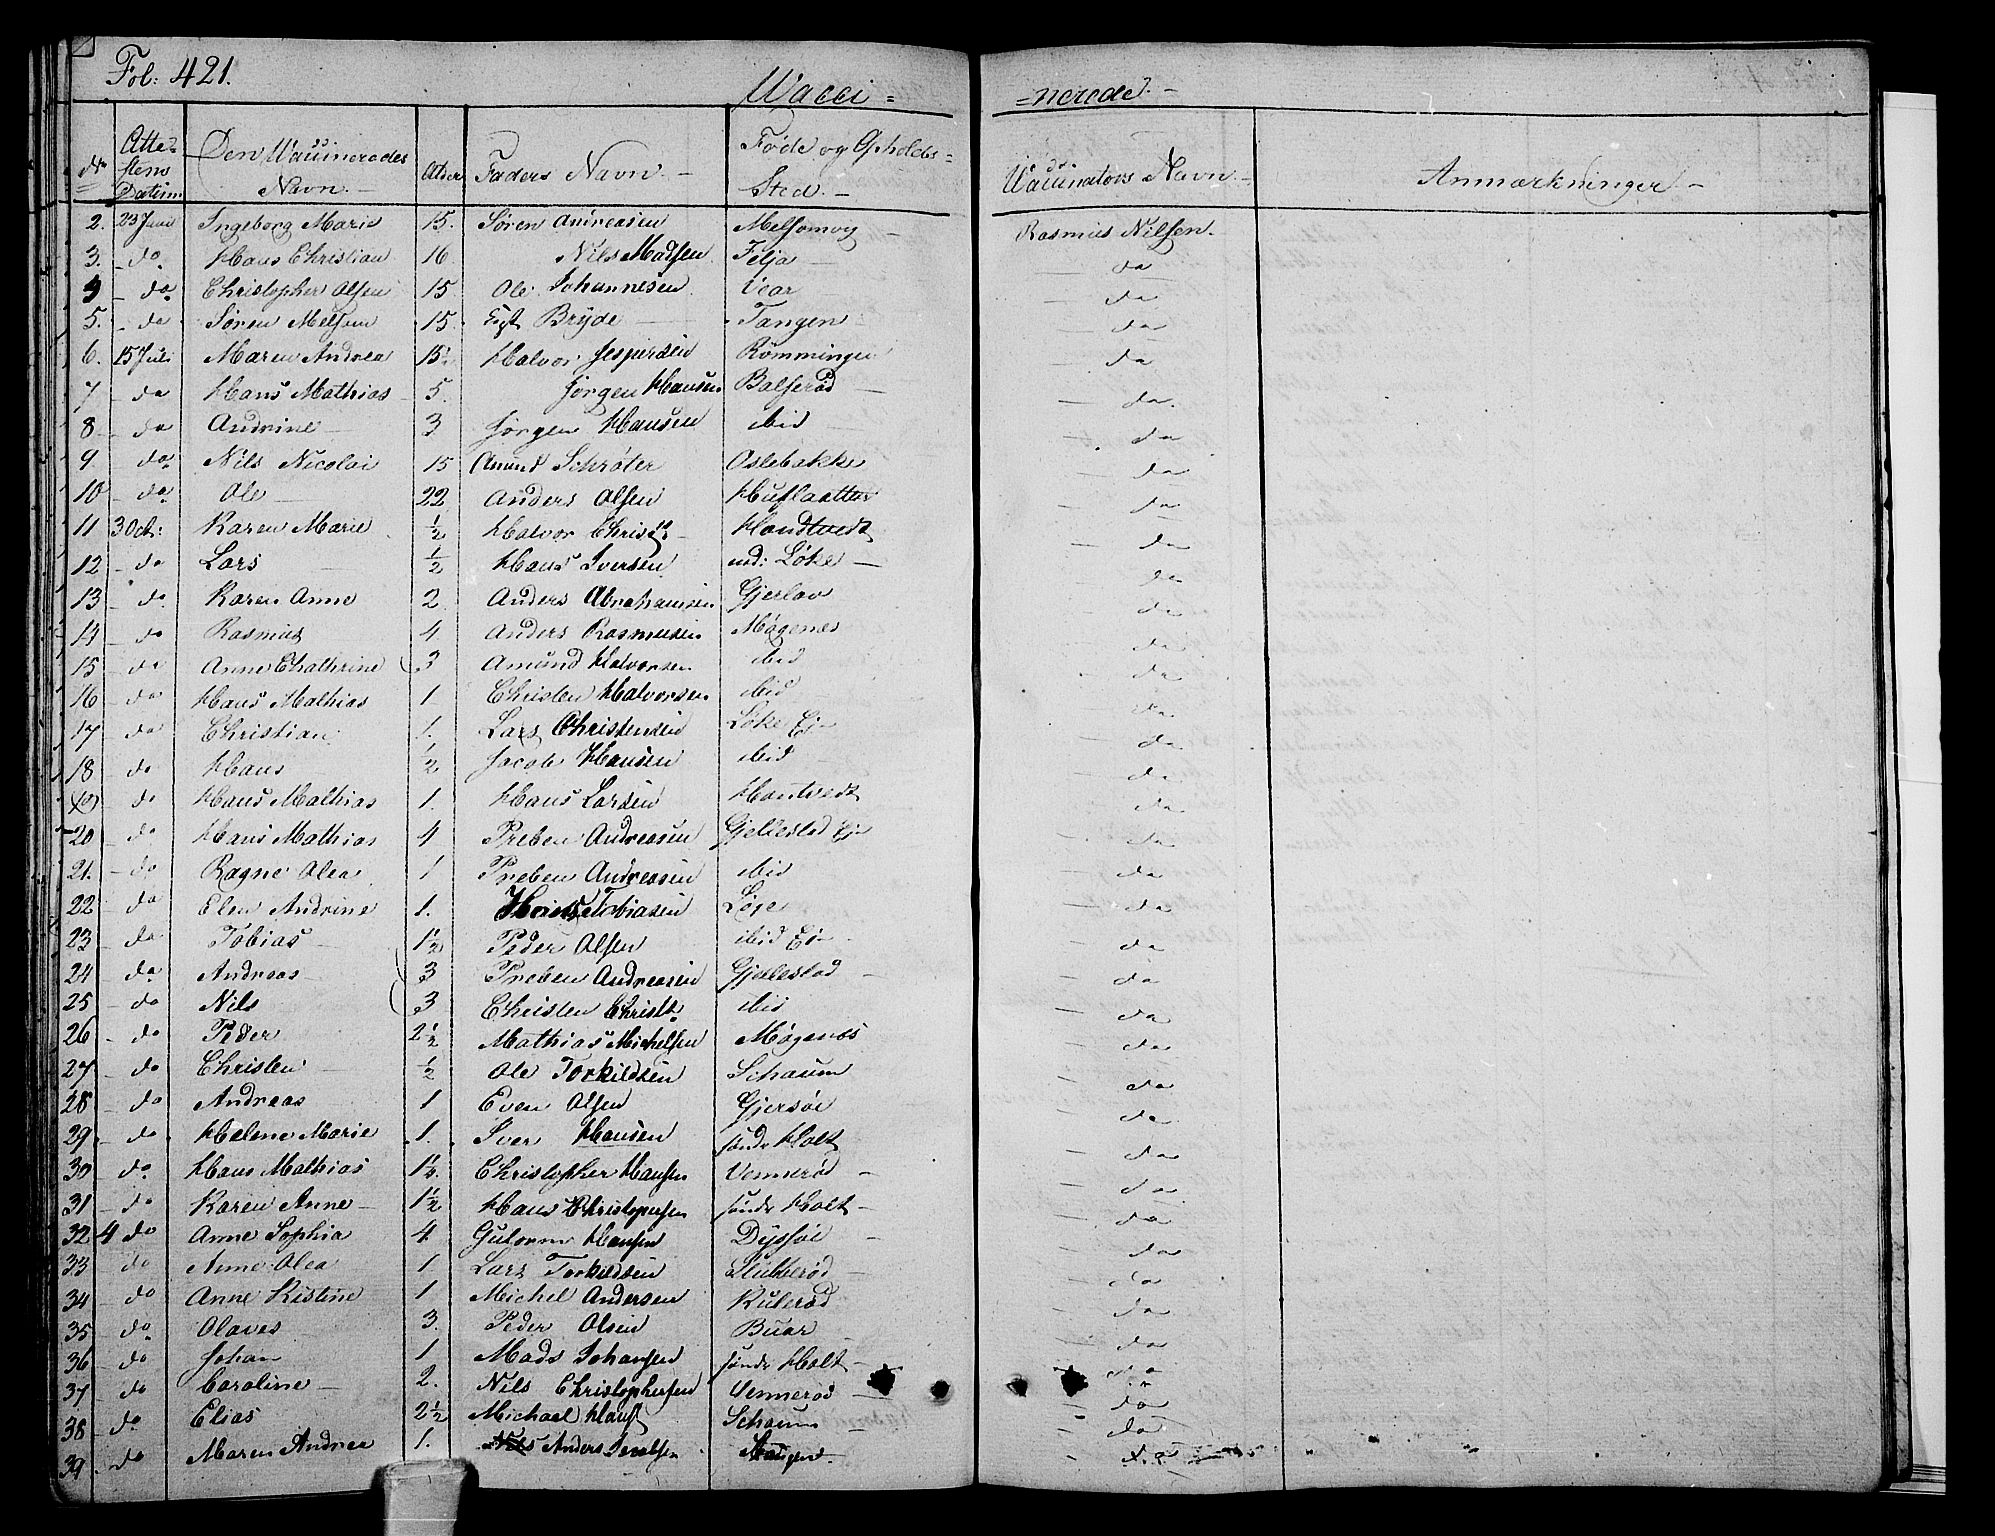 Fol: 421.
Wacci= =nerede. -
No Atte=stens Datum Den Waccinerades Navn. - Alder Faders Navn. - Føde og Opholds=Sted. - Vaccinators Navn. - Anmærkninger -
2. 23 Juni Ingeborg Marie 15. Søren Andreasen Melsomvig Rasmus Nilsen.
3. - do Hans Christian 16. Nils Madsen Felja - do
4 - do Christopher Olsen 15. Ole Johannesen Vear - do
5. - do Søren Melsom 15. Bryde Tangen - do
6. 15 Juli Maren Andrea 15½ Halvor Jespersen Rømmingen do
7 - do Hans Mathias 5. Jørgen Hansen Bolserød - do.
8 - do Andrine 3 Jørgen Hansen ibid - do
9 do Nils Nicolai 15 Amund Schrøter Oslebakke - do
10 - do Ole 22 Anders Olsen - do
11 3 Oct: Karen Marie ½ Halvor Christ Handtvedt - do
12 - do Lars ½ Hans Iversen und: Løke - - do
13 - do Karen Anne 2 Anders Abrahamsen Gjerlov - do
14 - do Rasmus 4 Anders Rasmusen Møgenæs - do
15 do Anne Chathrine 3 Amund Halvorsen ibid - do
16 - do Hans Mathias 1 Christen Halvorsen ibid - do
17 do Christian 1. Lars Christensen Løke Ei - do
18 do Hans ½ Jacob Hansen ibid - do
19 do Hans Mathias 1. Hans Larsen Hantvedt - do
20 do Hans Mathias 4 Preben Andreasen Gjellestad Ei - do
21. - do Ragne Olea 1 Preben Andreasen ibid - do
22 - do Elen Andrine 1. Tobiasen Løge - do
23 - do Tobias 1½ Peder Olsen ibid Ei - - do
24 - do Andreas 3 Preben Andreasen Gjelestad - - do
25 - do Nils 3 Christen Christ ibid - do
26 - do Peder 2½ Mathias Michelsen Møgenæs - do
27 - do Christen ½ Ole Torkildsen Schaum - do
28 - do Andreas 1 Even Olsen Gjersøe - do
29 - do Helene Marie 1. Iver Hansen søndr Holt - do
30 - do Hans Mathias 1½ Christopher Hansen Vennerød - - do
31 - do Karen Anne - 1½ Hans Christophersen søndr Holt - - do
32 4 do Anne Sophia 4 Gulorm Hansen Dyssøe - - do
33 do Anne Olea 1 Lars Torkildsen Stubberød - - do
34 do Anne Kistine 1 Michel Andersen Rulerød - do
35 - do Olaves 3. Peder Olsen Buar - do
36 - do Johan 1 Mads Johansen søndr Holt - do
37 do Caroline - 2. Nils Christophersen Vennerød - do
38 - do Elias 2½ Michael Hans Schaum - do
39 - do Maren Andrea 1. Anders - do